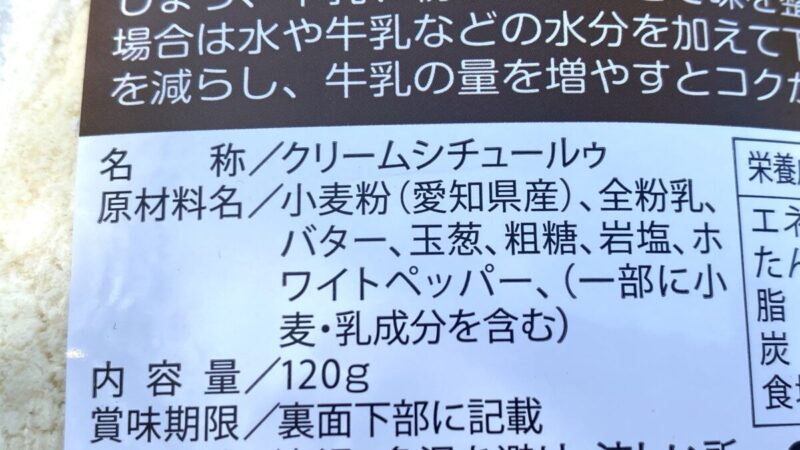 場合は水や牛乳などの水分を加えて
を減らし、牛乳の量を増やすとコク
名　称／クリームシチュールゥ
原材料名／小麦粉（愛知県産）、全粉乳、
バター、玉葱、粗糖、岩塩、ホ
ワイトペッパー、（一部に小
麦・乳成分を含む）
内容量／120g
賞味期限／裏面下部に記載
栄養
エネ
たん
脂
炭
食